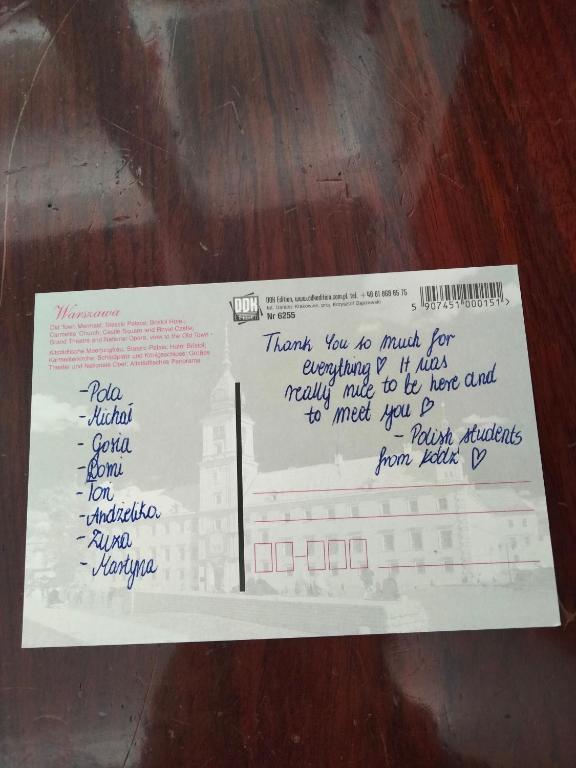 Warszawa
Old Town Mermaid; Staszic Palace; Bristol Hotel;
Carmelite Church; Castle Square and Royal Castle;
Grand Theatre and National Opera, view to the Old Town -
Altstädtische Meerjungfrau; Staszic-Palais; Hotel Bristol;
Karmelitenkirche; Schloßplatz und Königsschloss; Großes
Theater und Nationale Oper; Altstädtisches Panorama
DDK
DDK Edition, www.ddkedition.com.pl tel. +48 61 868 65 75
fot. Dariusz Krakowiak, proj. Krzysztof
Nr 6255
5 907451 000151 >
Thank You so much for
everything ♡ It was
really nice to be here and
to meet you ♡
- Polish students
from Łódź ♡
- Pola
- Michał
- Gosia
- Domi
- Toń
- Andżelika
- Zuza
- Martyna